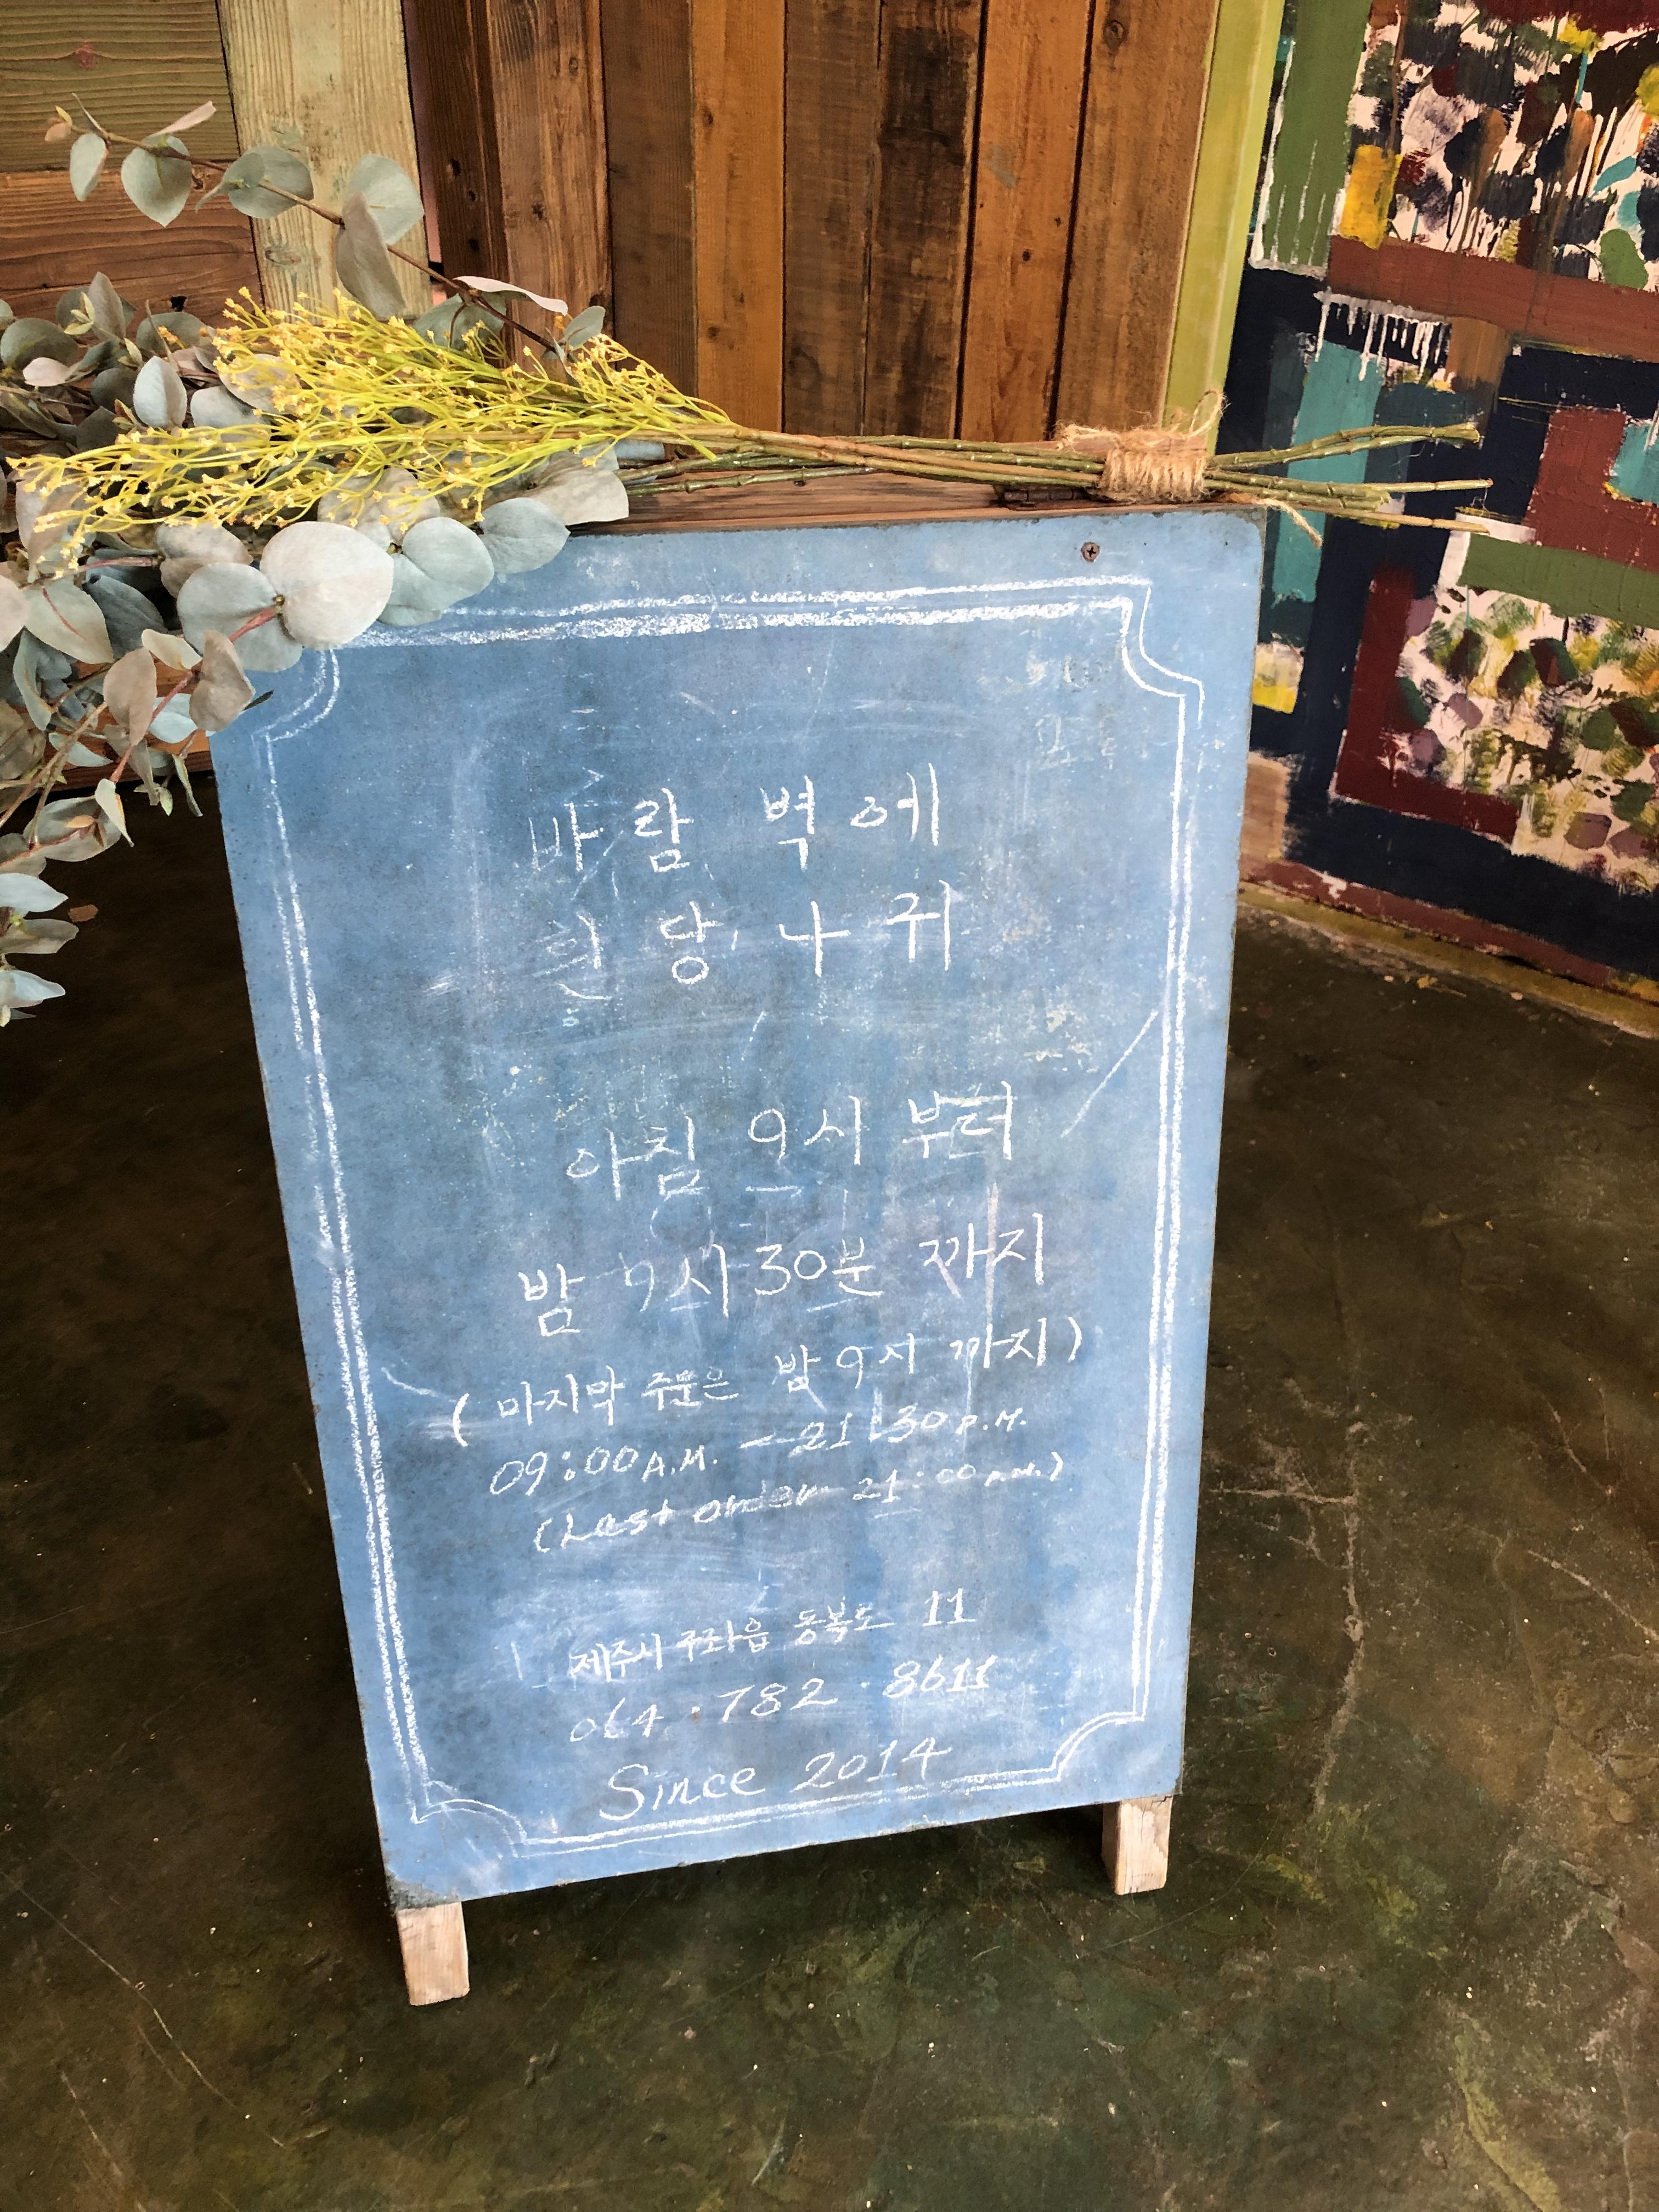 바람 벽에
흰 당나귀
아침 9시 부터
밤 9시 30분 까지
( 마지막 주문은 밤 9시 까지 )
09:00 A.M. - 21:30 P.M.
(Last order 21:00 P.M.)
제주시 구좌읍 동복로 11
064 · 782 · 8611
Since 2014